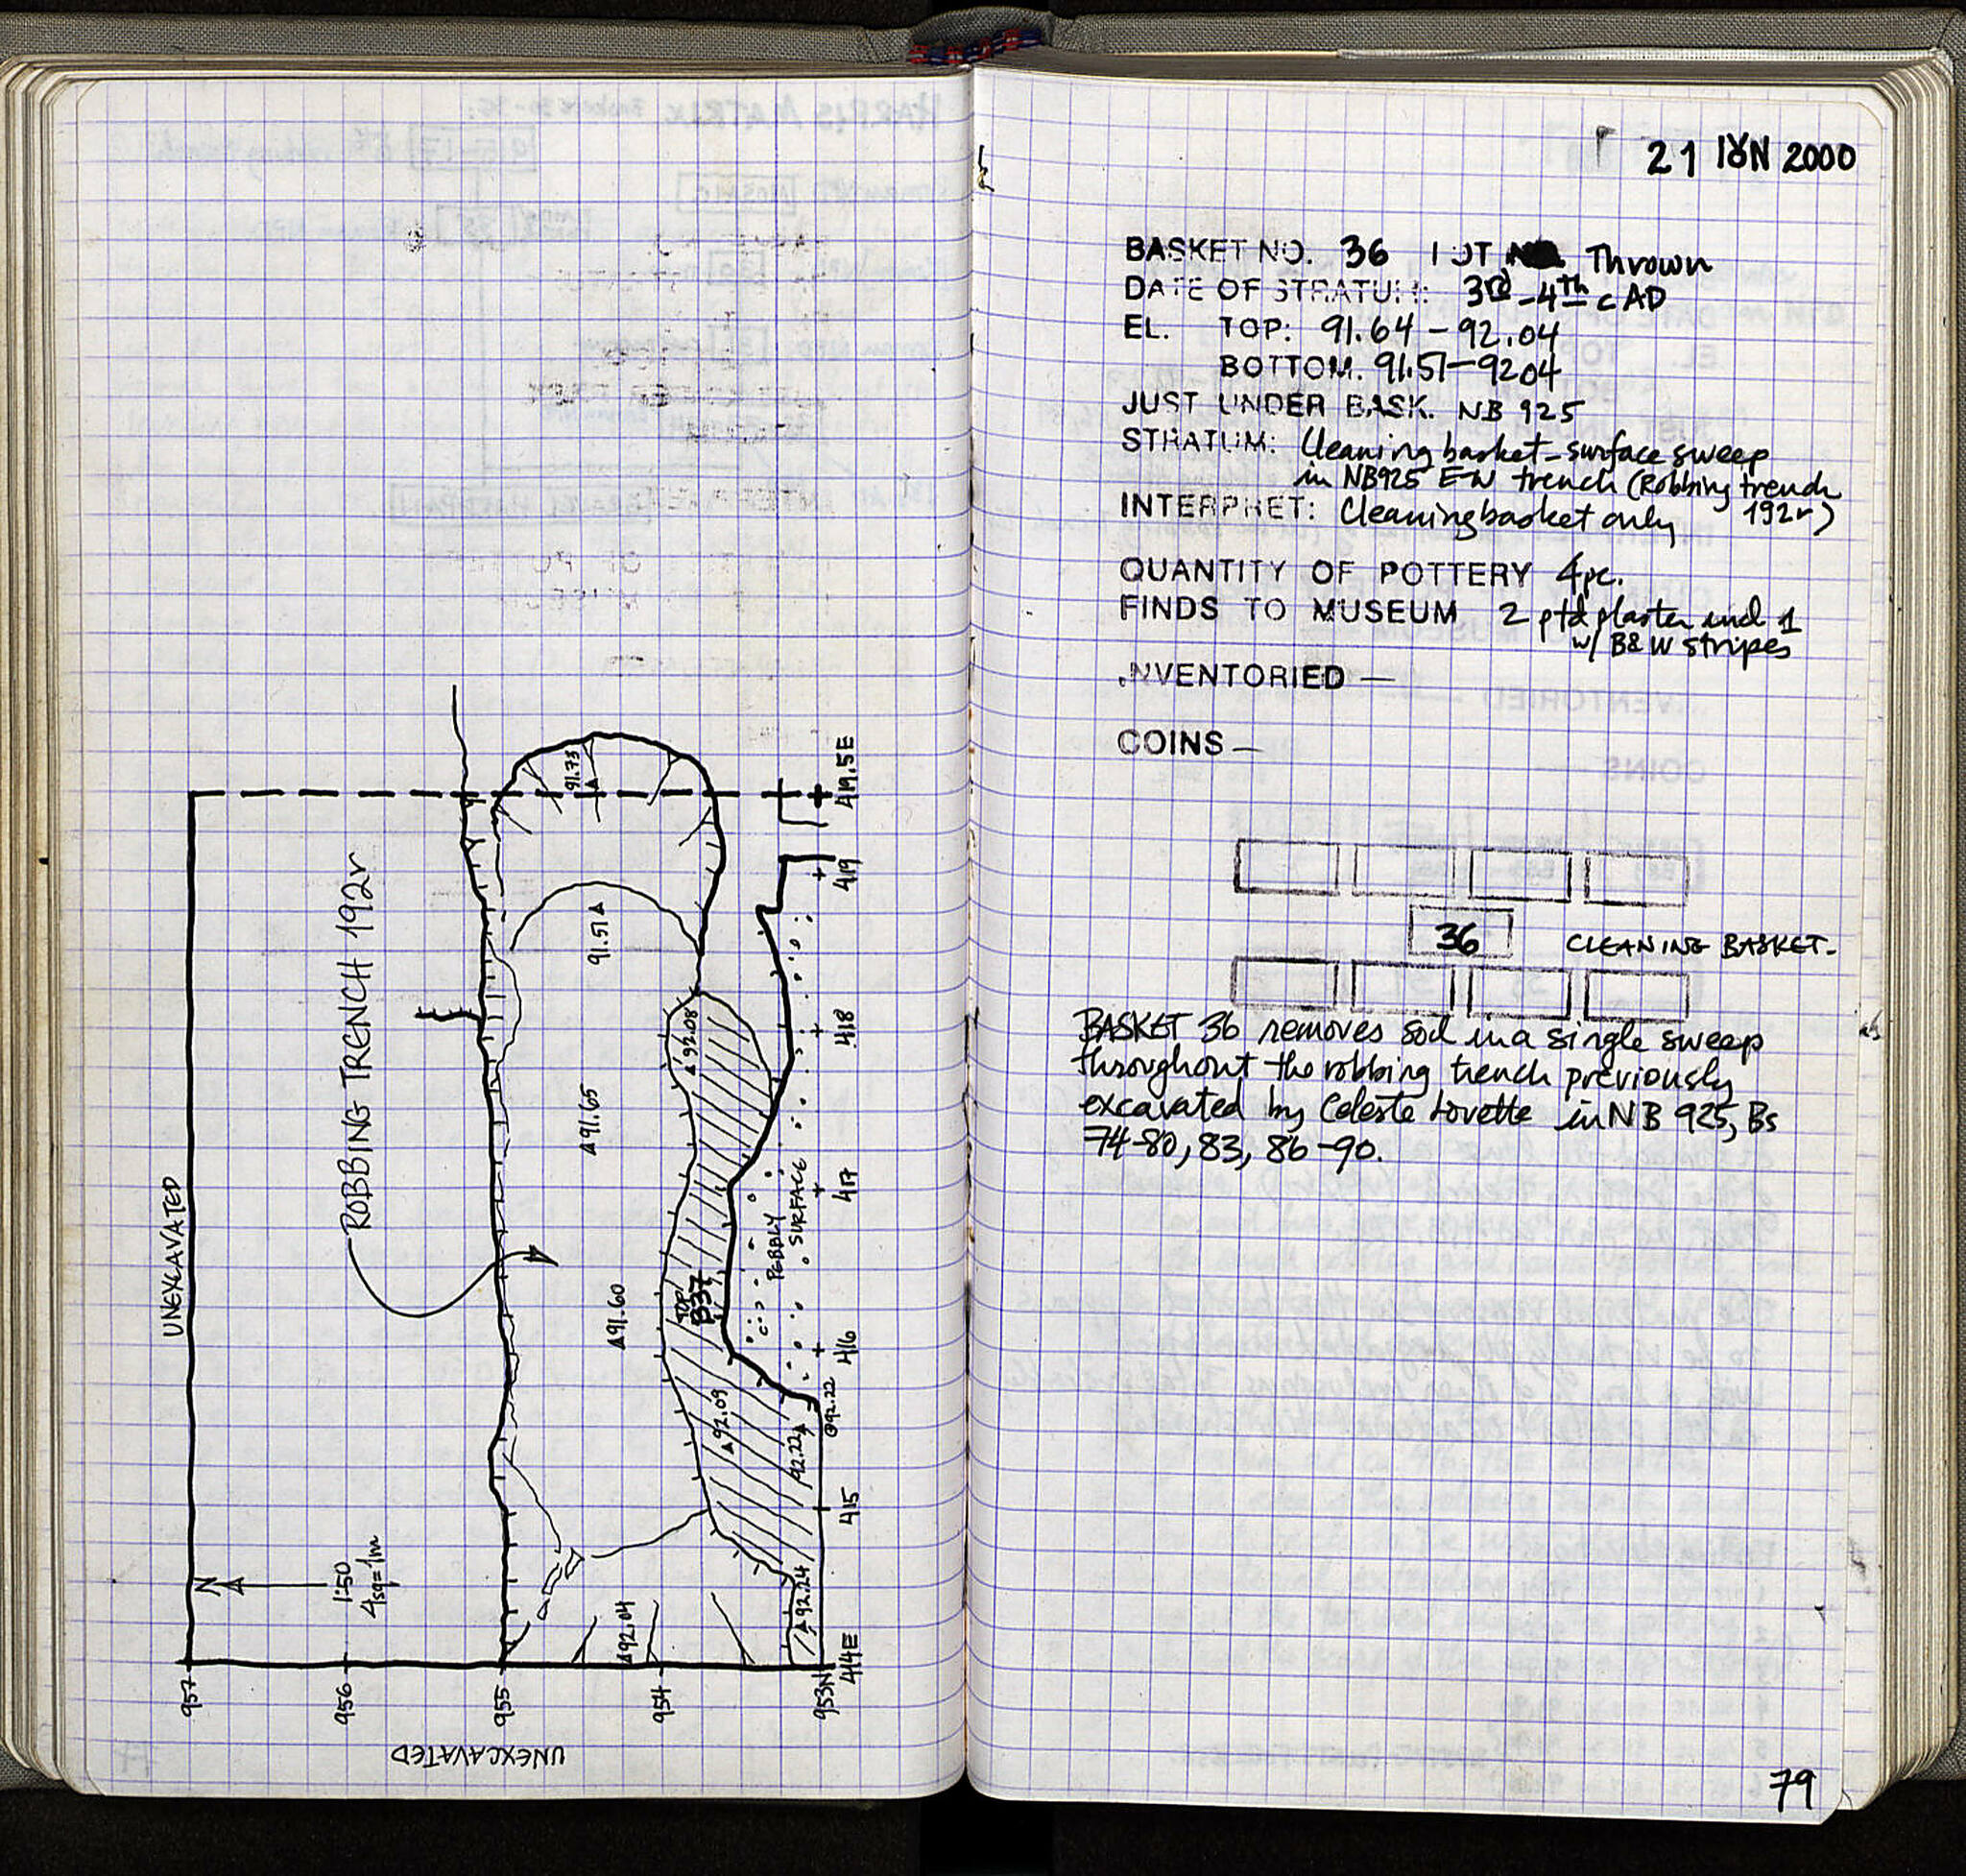 UNEXCAVATED
ROBBING TRENCH 192r
N
1:50
4sq=1m
957
956
955
954
953N
UNEXCAVATED
414E
415
416
417
418
419
419.5E
91.73
91.51
91.65
91.60
92.04
92.08
92.09
92.22
@92.22
92.24
TOP/
B37
PEBBLY
SURFACE
21 IȣN 2000
BASKET NO. 36 LOT Thrown
DATE OF STRATUM: 3rd-4th c AD
EL. TOP: 91.64-92.04
BOTTOM. 91.51-9204
JUST UNDER BASK. NB 925
STRATUM: Cleaning basket-surface sweep
in NB925 E-W trench (Robbing trench
192r)
INTERPRET: Cleaning basket only
QUANTITY OF POTTERY 4pc.
FINDS TO MUSEUM 2 ptd plaster incl 1
w/ B&W stripes
INVENTORIED —
COINS —
36 CLEANING BASKET.
BASKET 36 removes sod in a single sweep
throughout the robbing trench previously
excavated by Celeste Lovette in NB 925, Bs
74-80, 83, 86-90.
79